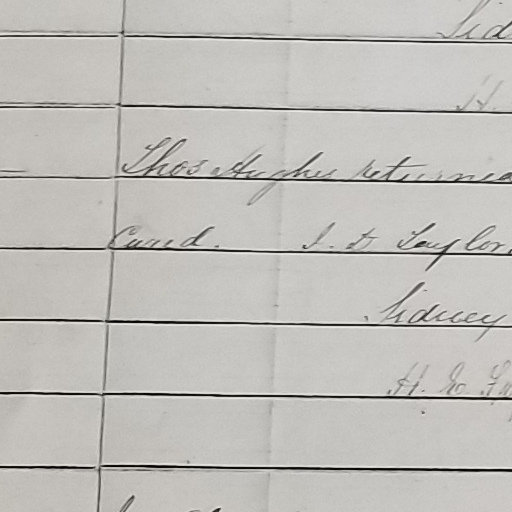 Sid
H.
Thos Hughes returned
Cured. J. D Taylor.
Sidney
H. G.